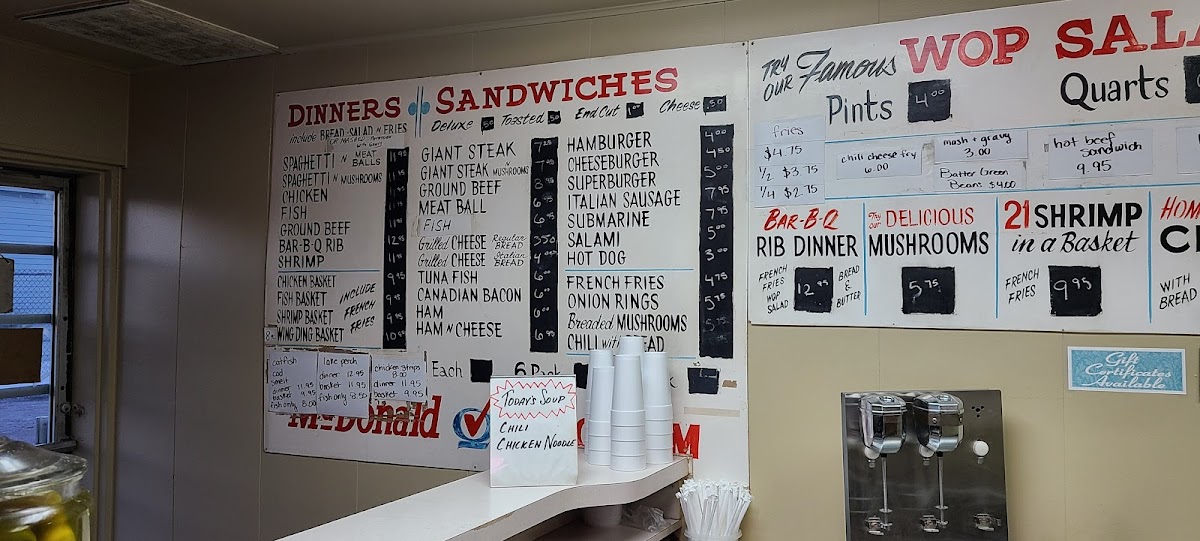 DINNERS
include BREAD-SALAD N FRIES
SPAGHETTI N MEAT BALLS
SPAGHETTI N MUSHROOMS
CHICKEN
FISH
GROUND BEEF
BAR-B-Q RIB
SHRIMP
CHICKEN BASKET
FISH BASKET
SHRIMP BASKET
WING DING BASKET
INCLUDE FRENCH FRIES
SANDWICHES
Deluxe 50 Toasted 50 End Cut Cheese 50
GIANT STEAK
GIANT STEAK N MUSHROOMS
GROUND BEEF
MEAT BALL
FISH
Grilled CHEESE Regular BREAD 350
Grilled CHEESE Italian BREAD
TUNA FISH
CANADIAN BACON
HAM
HAM N CHEESE
HAMBURGER 4 00
CHEESEBURGER 4 50
SUPERBURGER 5 00
ITALIAN SAUSAGE 7 95
SUBMARINE 7 95
SALAMI 5 00
HOT DOG 3 00
FRENCH FRIES 4 75
ONION RINGS 5 75
Breaded MUSHROOMS 5 75
CHILI with BREAD
Each 6 Pack
catfish
cod
smelt
dinner 11.95
basket 9.95
fish only 8.00
lake perch
dinner 12.95
basket 11.95
fish only 8.50
chicken strips
8.00
dinner 11.95
basket 9.95
McDonald
M
TODAY'S SOUP
CHILI
CHICKEN NOODLE
TRY OUR Famous WOP SALA
Pints 4 00 Quarts
fries
$4.75
1/2 $3.75
1/4 $2.75
chili cheese fry
6.00
mash + gravy
3.00
Batter Green
Beans $4.00
hot beef
sandwich
9.95
BAR-B-Q
RIB DINNER
FRENCH FRIES WOP SALAD
12 95
BREAD & BUTTER
Try our DELICIOUS
MUSHROOMS
5 75
21 SHRIMP
in a Basket
FRENCH FRIES
9 95
HOM
C
WITH
BREAD
Gift
Certificates
Available